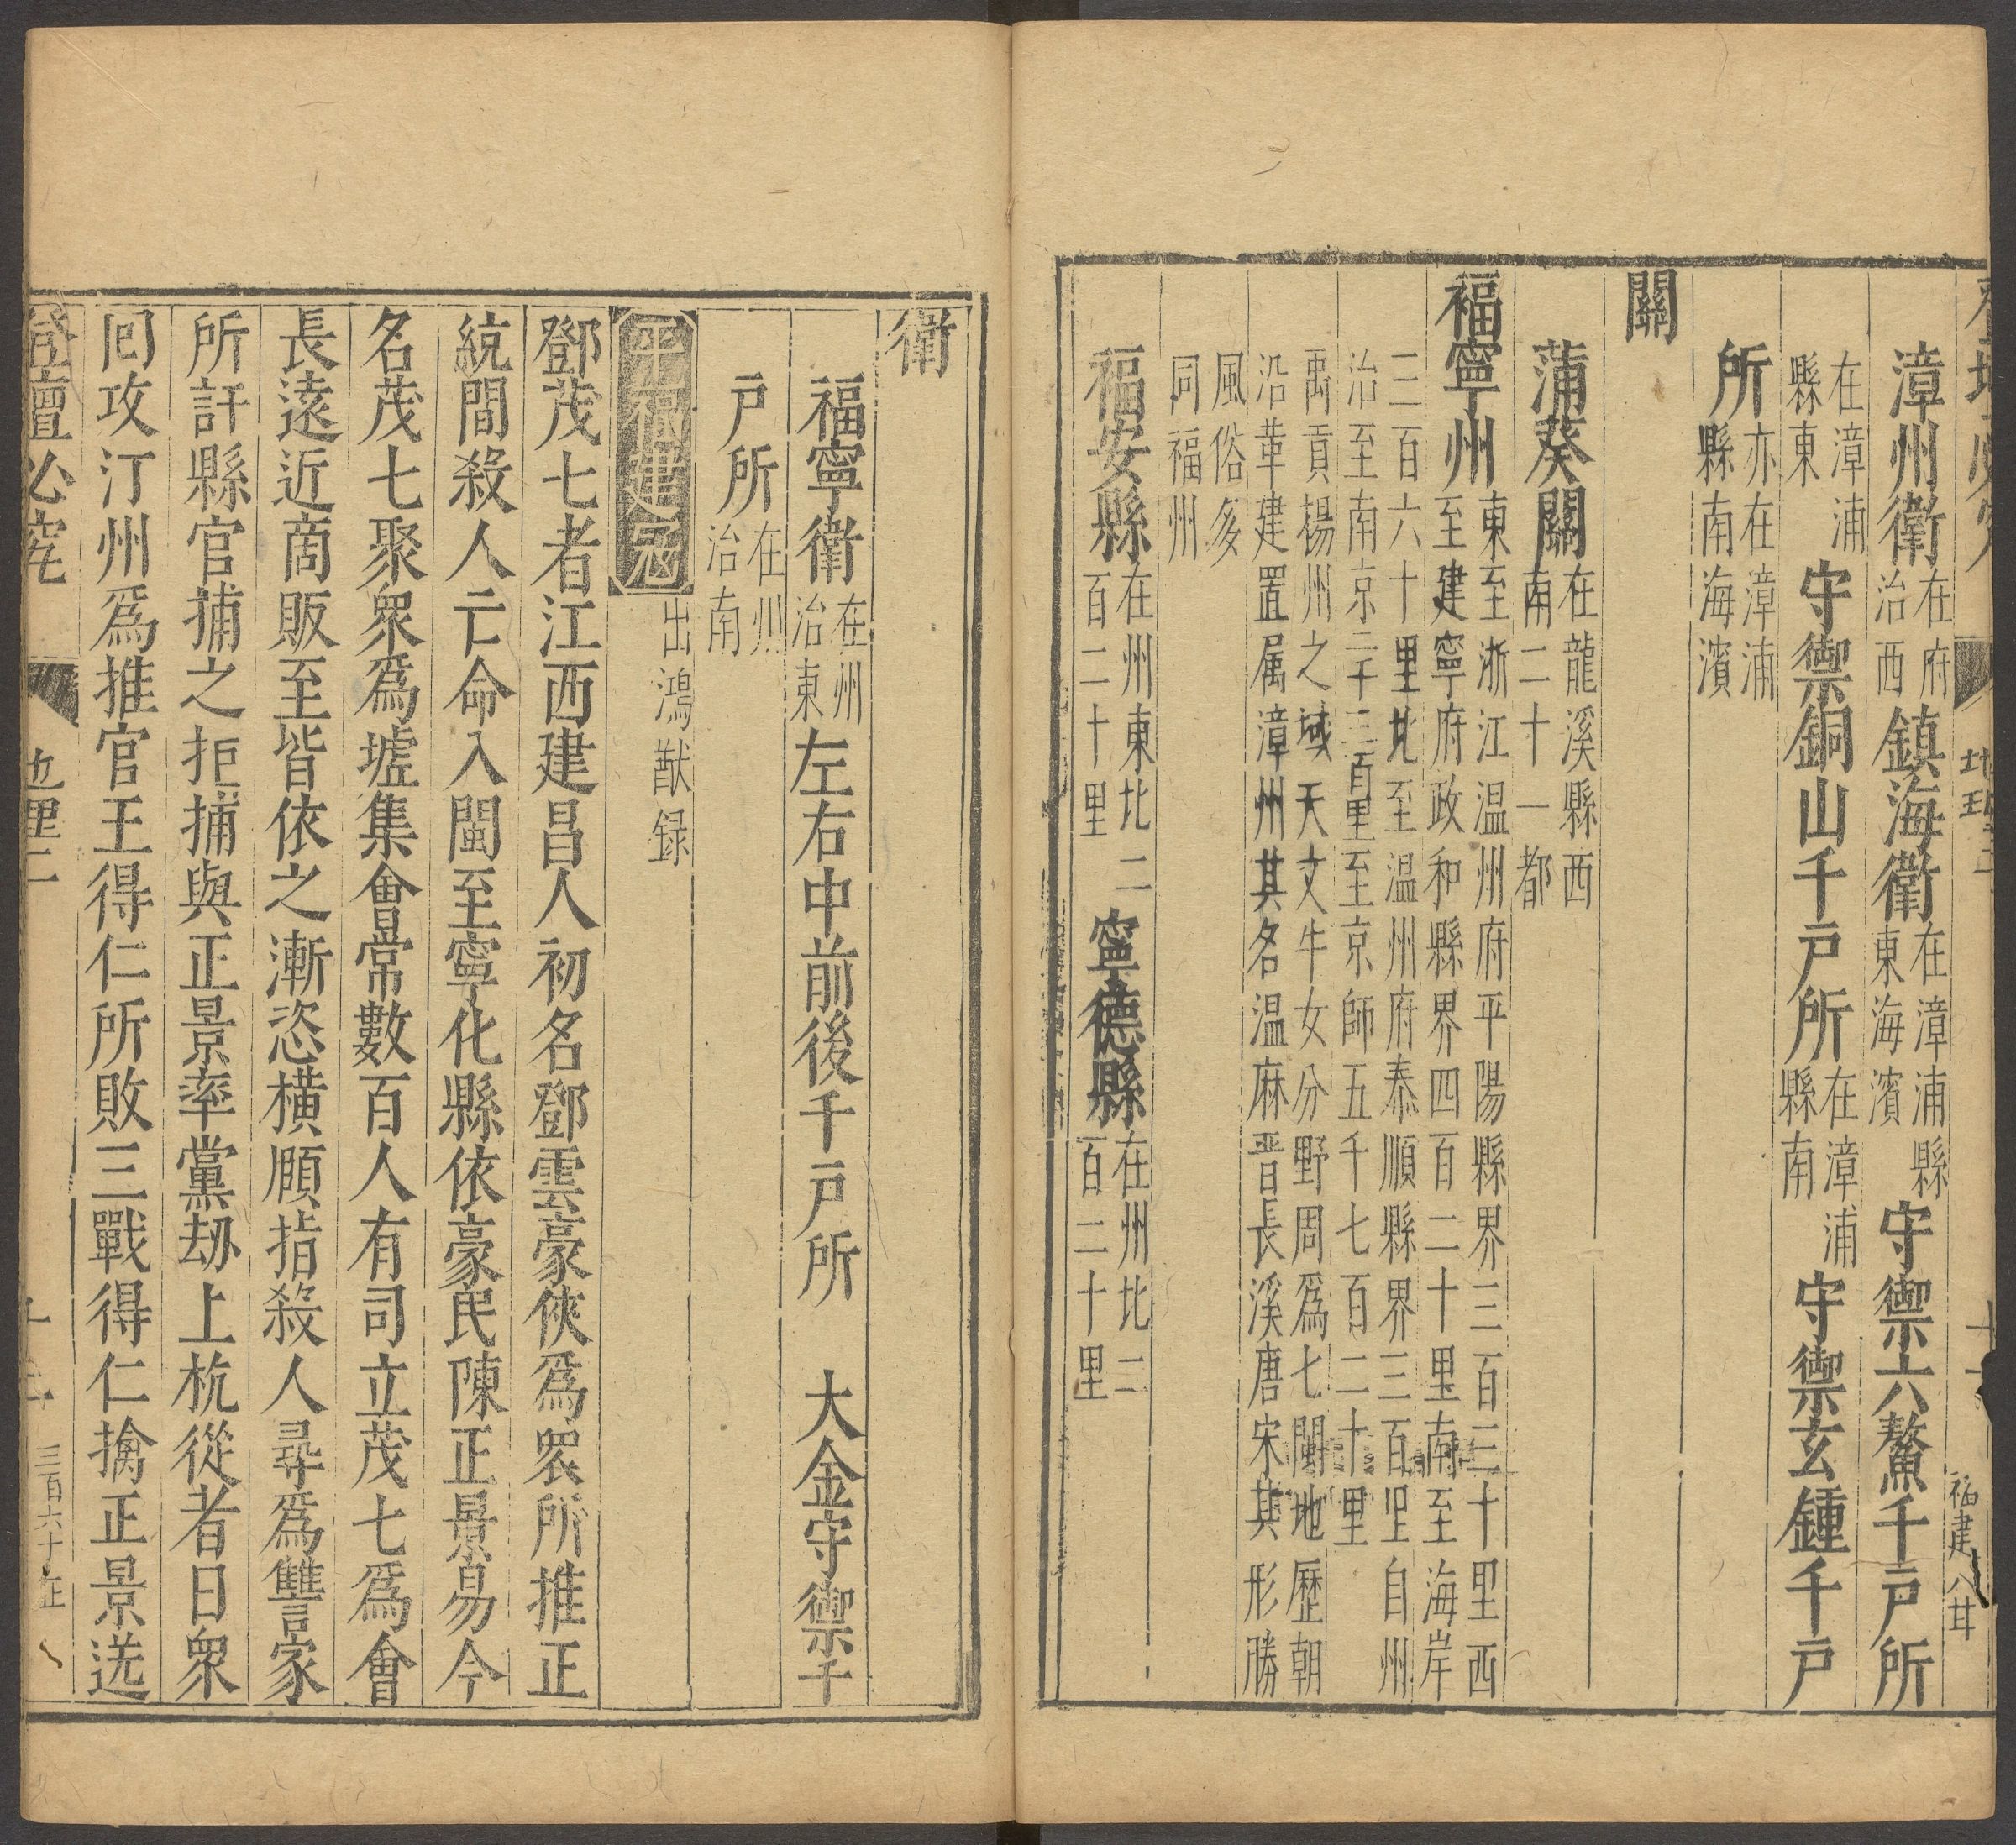 漳州衛在府治西 鎮海衛在漳浦縣東海濱 守禦六鰲千戸所
在漳浦縣東 守禦銅山千戸所在漳浦縣南 守禦玄鍾千戸
所亦在漳浦縣南海濱
關
蒲葵關在龍溪縣西南二十一都
福寧州東至浙江温州府平陽縣界三百三十里西至建寧府政和縣界四百二十里南至海岸
三百六十里北至温州府泰順縣界三百里自州治至南京二千三百里至京師五千七百二十里
禹貢楊州之域天文牛女分野周爲七閩地歷朝沿革建置属漳州其名温麻晋長溪唐宋其形勝
風俗多同福州
福安縣在州東北二百二十里 寧德縣在州北二百二十里
福建
衛
福寧衛在州治東左右中前後千戸所 大金守禦千
戸所在州治南
平福建寇出鴻猷録
鄧茂七者江西建昌人初名鄧雲豪俠爲衆所推正
統間殺人亡命入閩至寧化縣依豪民陳正景易今
名茂七聚衆爲墟集會常數百人有司立茂七爲會
長遠近商販至皆依之漸恣橫頤指殺人尋爲讐家
所訐縣官捕之拒捕與正景率黨刼上杭從者日衆
囘攻汀州爲推官王得仁所敗三戰得仁擒正景送
登壇必究 地理二 十二 三百六十五